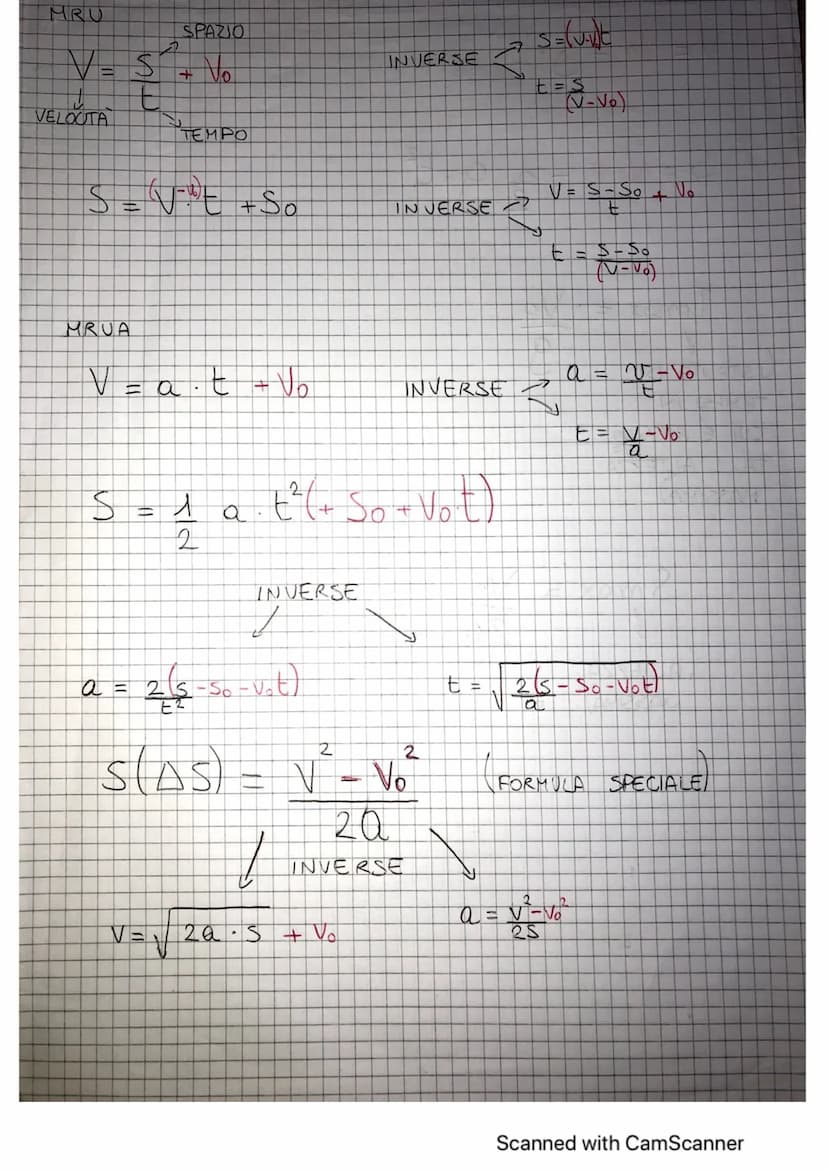 MRU
V = S/t + V₀
SPAZIO
VELOCITÀ
TEMPO
INVERSE
S = (V-V)t
t = S/(V-V₀)
S = (V-V₀)·t + S₀
INVERSE
V = S-S₀/t + V₀
t = S-S₀/(V-V₀)
MRUA
V = a · t + V₀
INVERSE
a = V/t -V₀
t = V/a -V₀
S = 1/2 a · t² (+ S₀ + V₀·t)
INVERSE
a = 2(S-S₀-V₀t)/t²
t = √2(S-S₀-V₀t)/a
S(ΔS) = V² - V₀²/2a (FORMULA SPECIALE)
INVERSE
V = √2a · S + V₀
a = V²-V₀²/2S
Scanned with CamScanner